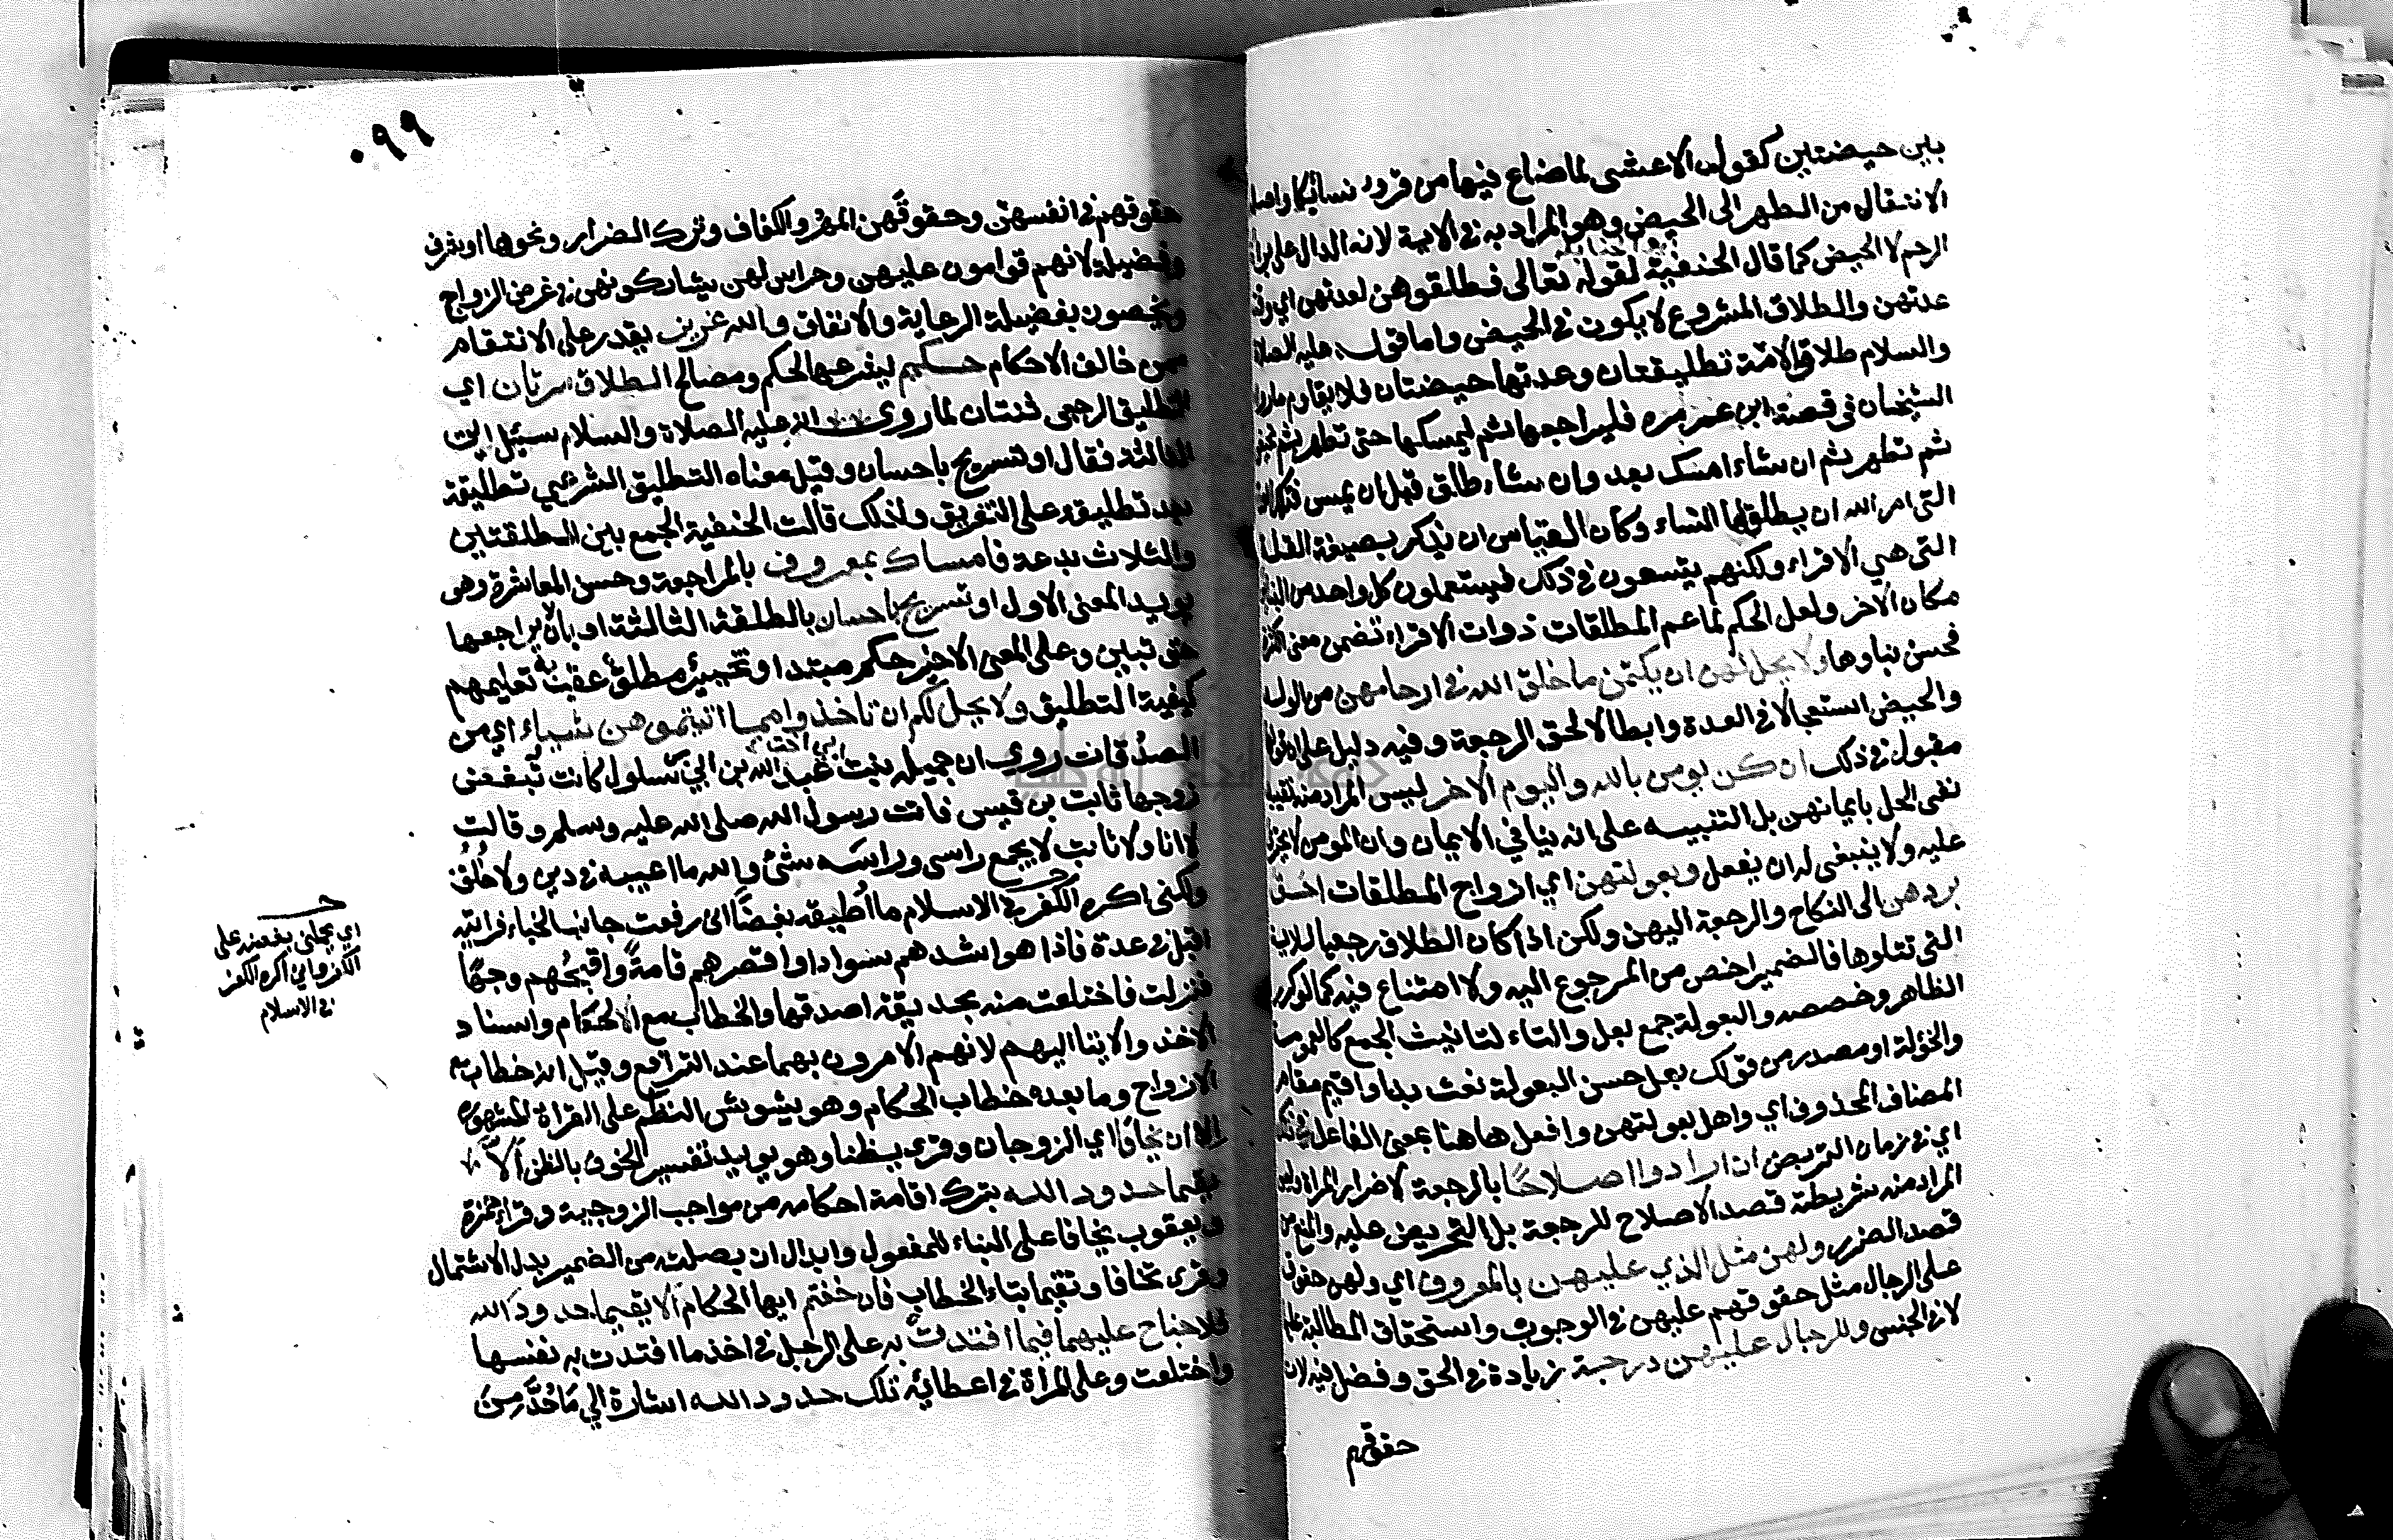 بين حيضتين كقول الاعشى لما ضاع فيها من قروء نسائكا واصله
الانتقال من الطهر الى الحيض وهو المراد به في الاية لانه الدال على براة
الرحم لا الحيض كما قال الحنفية لقوله تعالى فطلقوهن لعدتهن اي وقت
عدتهن والطلاق المشروع لا يكون في الحيض واما قوله عليه الصلاة
والسلام طلاق الامة تطليقتان وعدتها حيضتان فلا يقاوم ما رواه
الشيخان في قصة ابن عمر مره فليراجعها ثم ليمسكها حتى تطهر ثم تحيض
ثم تطهر ثم ان شاء امسك بعد وان شاء طلق قبل ان يمس فتلك العدة
التى امر الله ان يطلق لها النساء وكان القياس ان يذكر بصيغة القلة
التى هي الاقراء ولكنهم يتسعون في ذلك فيستعملون كل واحد من البناءين
مكان الاخر ولعل الحكم لما عم المطلقات ذوات الاقراء تضمن معنى الكثرة
فحسن بناوها ولا يحل لهن ان يكتمن ما خلق الله في ارحامهن من الولد
والحيض استعجالا في العدة وابطالا لحق الرجعة وفيه دليل على ان قولها
مقبول في ذلك ان كن يومن بالله واليوم الاخر ليس المراد منه تقييد
نفى الحل بايمانهن بل التنبيه على انه ينافي الايمان وان المومن لا يجترئ
عليه ولا ينبغى له ان يفعل وبعولتهن اي ازواج المطلقات احق
بردهن الى النكاح والرجعة اليهن ولكن اذا كان الطلاق رجعيا للاية
التى تتلوها فالضمير اخص من المرجوع اليه ولا امتناع فيه كما لو كرر
الظاهر وخصصه والبعولة جمع بعل والتاء لتانيث الجمع كالعمومة
والخؤلة او مصدر من قولك بعل حسن البعولة نعت به او اقيم مقام
المضاف المحذوف اي واهل بعولتهن وافعل هاهنا بمعنى الفاعل في ذلك
اي في زمان التربص ان ارادوا اصلاحًا بالرجعة لا ضرار المراة وليس
المراد منه شريطة قصد الاصلاح للرجعة بل التحريض عليه والمنع من
قصد الضرر ولهن مثل الذي عليهن بالمعروف اي ولهن حقوق
على الرجال مثل حقوقهم عليهن في الوجوب واستحقاق المطالبة عليها
لا في الجنس وللرجال عليهن درجة زيادة في الحق وفضل فيه لان
حقوقهم
٩٩
حقوقهم في انفسهن وحقوقهن المهر والكفاف وترك الضرار ونحوها او شرف
وفضيلة لانهم قوامون عليهن وحراس لهن يشاركونهن في غرض الزواج
ويخصون بفضيلة الرعاية والانفاق والله عزيز يقدر على الانتقام
ممن خالف الاحكام حكيم يشرعها لحكم ومصالح الطلاق مرتان اي
التطليق الرجعى ثنتان لما روى انه عليه الصلاة والسلام سيل اين
الثالثة فقال او تسريح باحسان وقيل معناه التطليق الشرعي تطليقة
بعد تطليقة على التفريق ولذلك قالت الحنفية الجمع بين الطلقتين
والثلاث بدعة فامساك بمعروف بالمراجعة وحسن المعاشرة وهو
يويد المعنى الاول او تسريح باحسان بالطلقة الثالثة او بان لا يراجعها
حتى تبين وعلى المعنى الاخير حكم مبتدا وتخيير مطلق عقب به تعليمهم
كيفية التطليق ولا يحل لكم ان تاخذوا مما اتيتموهن شياء اي من
الصدقات روى ان جميلة بنت عبد الله بن ابي سلول كانت تبغض
زوجها ثابت بن قيس فاتت رسول الله صلى الله عليه وسلم وقالت
لا انا ولا ثابت لا يجمع راسى وراسه شئ والله ما اعيبه في دين ولا خلق
ولكنى اكره الكفر في الاسلام ما اطيقه بغضا انى رفعت جانب الخباء فرايته
اقبل في عدة فاذا هو اشدهم سوادا واقصرهم قامةً واقبحهم وجهًا
فنزلت فاختلعت منه بحديقة اصدقها والخطاب مع الحكام واسناد
الاخذ والايتا اليهم لانهم الامرون بهما عند الترافع وقيل انه خطاب
الازواج وما بعده خطاب الحكام وهو يشوش النظم على القراة المشهورة
الا ان يخافا اي الزوجان وقرى يظنا وهو يويد تفسير الخوف بالظن الاّ
يقيما حدود الله بترك اقامة احكامه من مواجب الزوجية وقراء حمزة
ويعقوب يخافا على البناء للمفعول وابدال ان بصلته من الضمير بدل الاشتمال
وقرى تخافا وتقيما بتاء الخطاب فان خفتم ايها الحكام الا يقيما حدود الله
فلا جناح عليهما فيما افتدت به على الرجل في اخذ ما افتدت به نفسها
واختلعت وعلى المراة في اعطائه تلك حدود الله اشارة الي ما حُدَّ من
اي يحملنى بغضه على
الكفر واني اكره الكفر
في الاسلام